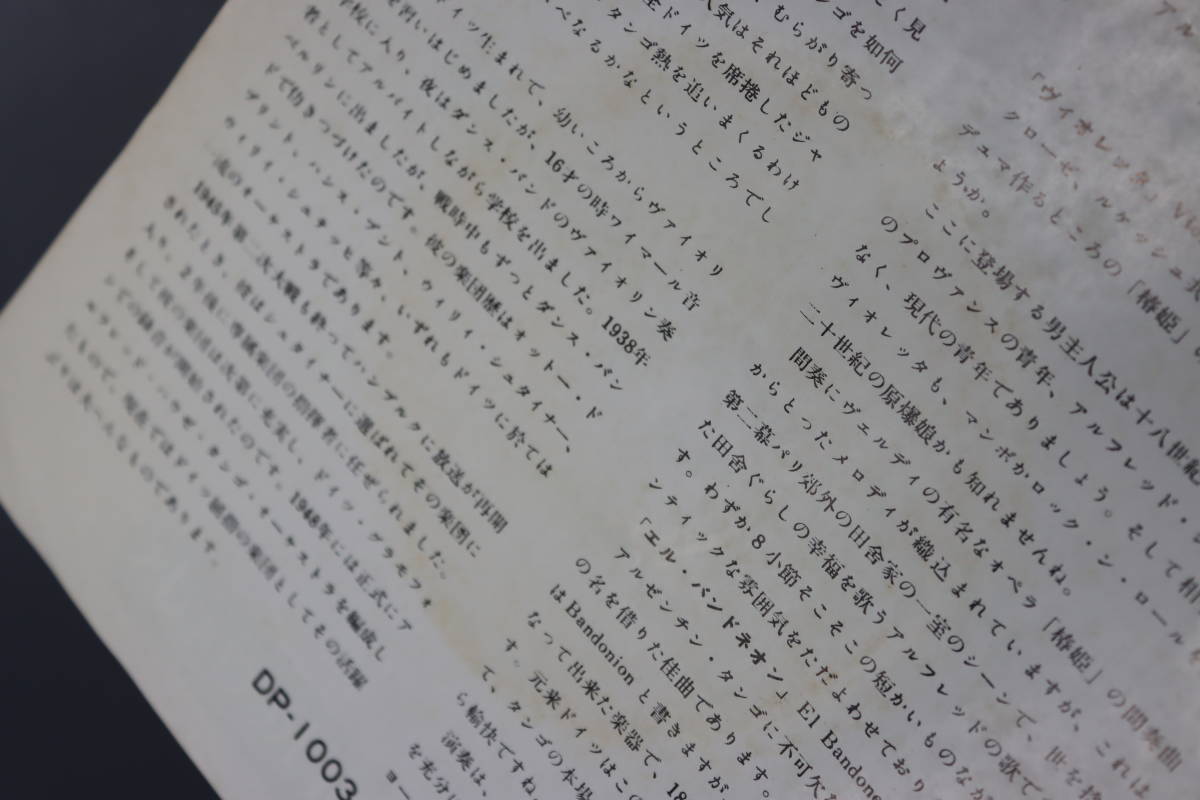 く見
ンゴを如何
むらがり寄っ
人気はそれほどもの
全ドイツを席捲したジャ
タンゴ熱を追いまくるわけ
べなるかなというところでし
ドイツ生まれて、幼いころからヴァイオリ
を習いはじめましたが、16才の時ワイマール音
学校に入り、夜はダンス・バンドのヴァイオリン奏
者としてアルバイトしながら学校を出ました。1938年
ベルリンに出ましたが、戦時中もずっとダンス・バン
ドで仂きつづけたのです。彼の楽団歴はオットー・ド
ブリント、ハンス・ブント、ウィリイ・シュタイナー、
ウィリイ・シュナッヒ等々、いずれもドイツに於ては
一流のオーケストラであります。
1945年第二次大戦も終ってハンブルクに放送が再開
されたとき、彼はシュタイナーに選ばれてその楽団に
入り、2年後に専属楽団の指揮者に任ぜられました。
そして彼の楽団は次第に充実し、ドイツ・グラモフォ
ンでの録音が開始されたのです。1948年には正式にア
ルフレッド・ハウゼ・タンゴ・オーケストラを編成し
たもので、現在ではドイツ屈指の楽団としてその活躍
ぶりは大へんなものであります。
アル
「ヴィオレッタ」
クローゼ、ルケッシュ
デュマ作るところの「椿姫」
ょうか。
ここに登場する男主人公は十八世紀
のプロヴァンスの青年、アルフレッド・
なく、現代の青年でありましょう。そして相
ヴィオレッタも、マンボかロック・ン・ロール
二十世紀の原爆娘かも知れませんね。
間奏にヴェルディの有名なオペラ「椿姫」の間奏曲
からとったメロディが織込まれていますが、これは
第二幕パリ郊外の田舎家の一室のシーンで、世を
た田舎ぐらしの幸福を歌うアルフレッドの歌で
す。わずか8小節そこそこの短かいものなが
ンティックな雰囲気をただよわせており
「エル・バンドネオン」El Bandone
アルゼンチン・タンゴに不可欠な
の名を借りた佳曲であります。
はBandonionと書きますが
なって出来た楽器で、18
す。元来ドイツはこの
て、タンゴの本場
ら愉快ですね。
演奏は、
を充分
ヨー
DP-1003